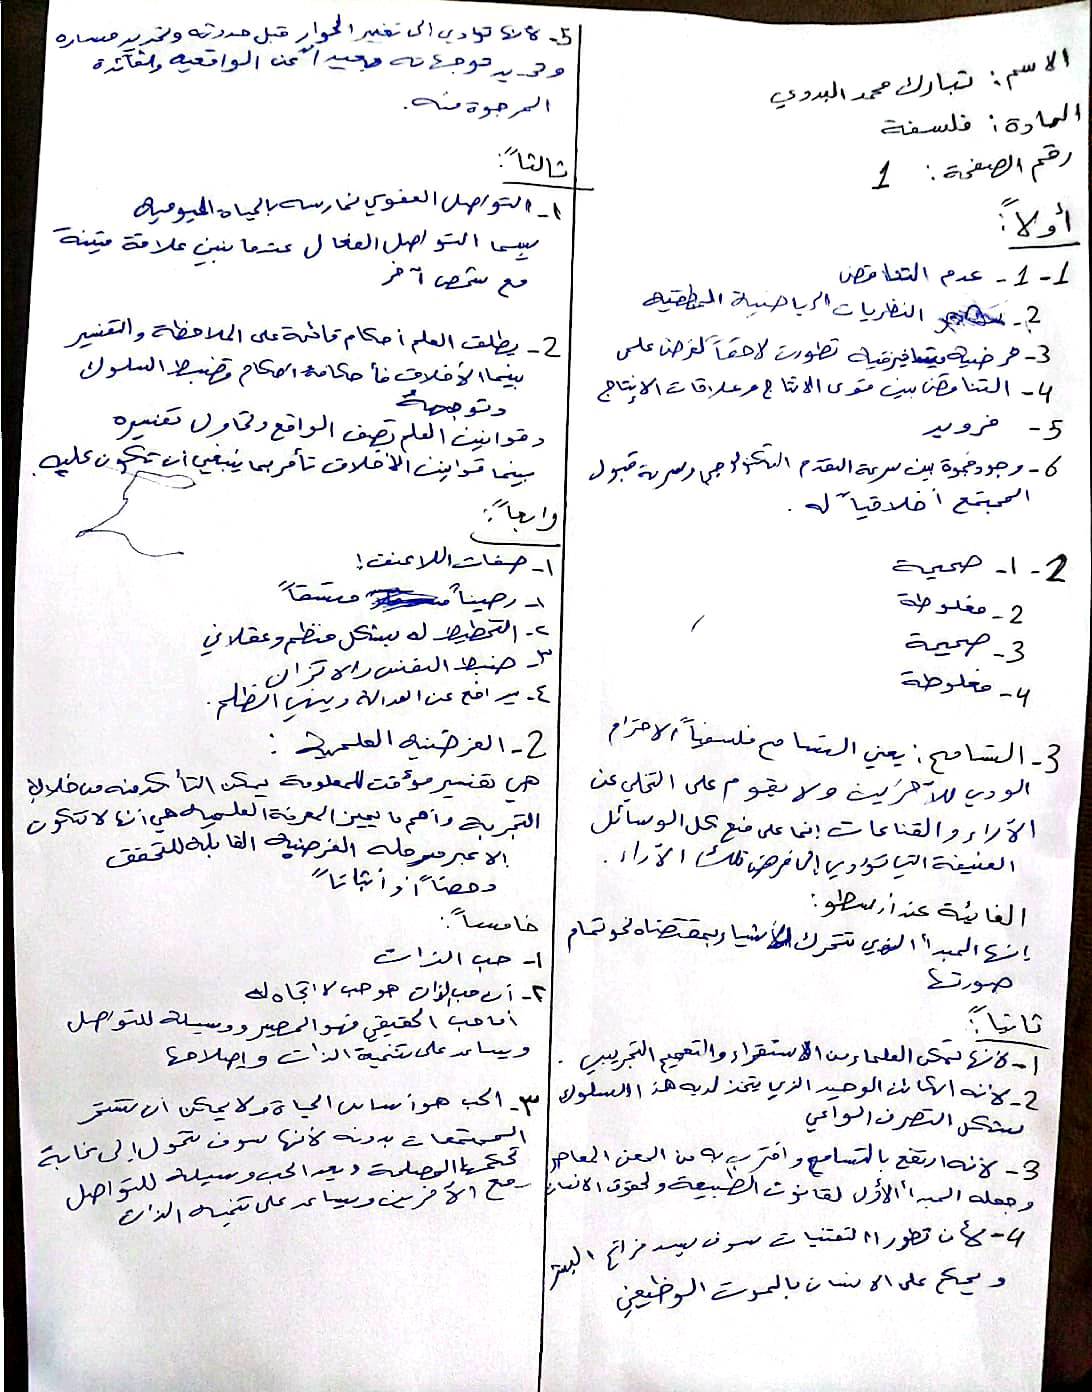 الاسم: تبارك محمد البدوي
المادة: فلسفة
رقم الصفحة: 1
أولاً:
1- 1- عدم التناقض
2- النظريات الرياضية المنطقية
3- فرضية ميتافيزيقية تطورت لاحقاً كفرض علمي
4- التناقض بين قوى الإنتاج وعلاقات الإنتاج
5- فرويد
6- وجود فجوة بين سرعة التقدم التكنولوجي وسرعة قبول
المجتمع أخلاقياً له.
2- 1- صحيحة
2- مغلوطة
3- صحيحة
4- مغلوطة
3- التسامح: يعني التسامح فلسفياً الاحترام
الودي للآخرين ولا يقوم على التخلي عن
الآراء والقناعات إنما على منع كل الوسائل
العنيفة التي تؤدي إلى فرض تلك الآراء.
الغائية عند أرسطو:
إنها المبدأ الذي تتحرك الأشياء بمقتضاه نحو تمام
صورتها
ثانياً:
1- لأنها تمكن العلماء من الاستقراء والتعميم التجريبي.
2- لأنه الكائن الوحيد الذي يتخذ لديه هذا السلوك
شكل التصرف الواعي
3- لأنه ارتقع بالتسامح واقترب به من المعن المعاصر
وجعله المبدأ الأول لقانون الطبيعة ولحقوق الانسان
4- لأن تطور التقنيات سوف يسد فراغ البشر
ويحكم على الانسان بالموت الوظيفي
5- لأنها تؤدي الى تغيير الحوار قبل حدوثه وتحديد مساره
وتحديد توجهاته بعيداً عن الواقعية والفائدة
المرجوة منه.
ثالثاً:
١- التواصل العفوي نمارسه بالحياة اليومية
بينما التواصل الفعال عندما نبني علاقة متينة
مع شخص آخر
2- يطلق العلم أحكام قائمة على الملاحظة والتفسير
بينما الأخلاق فأحكامه أحكام تضبط السلوك
وتوجهه
وقوانين العلم تصف الواقع وتحاول تفسيره
بينما قوانين الأخلاق تأمر بما ينبغي أن تكون عليه.
رابعاً:
١- صفات اللاعنف:
١- رصيناً متسقاً
٢- التخطيط له بشكل منظم وعقلاني
٣- ضبط النفس والاتزان
٤- يدافع عن العدالة وينهي الظلم.
2- الفرضية العلمية:
هي تفسير مؤقت للمعلومة يمكن التأكد منه من خلال
التجربة وأهم ما يميز المعرفة العلمية هي أنها لا تتكون
إلا عبر مرحلة الفرضية القابلة للتحقق
دحضاً أو أثباتاً
خامساً:
١- حب الذات
٢- أن حب الذات هو حب لا اتجاه له
أما حب الحقيقي فهو المصير ووسيلة للتواصل
ويساعد على تنمية الذات وإصلاحها
٣- الحب هو أساس الحياة ولا يمكن أن تستمر
المجتمعات بدونه لأنها سوف تتحول إلى غابة
تحكمها المصلحة ويعد الحب وسيلة للتواصل
مع الآخرين ويساعد على تنمية الذات